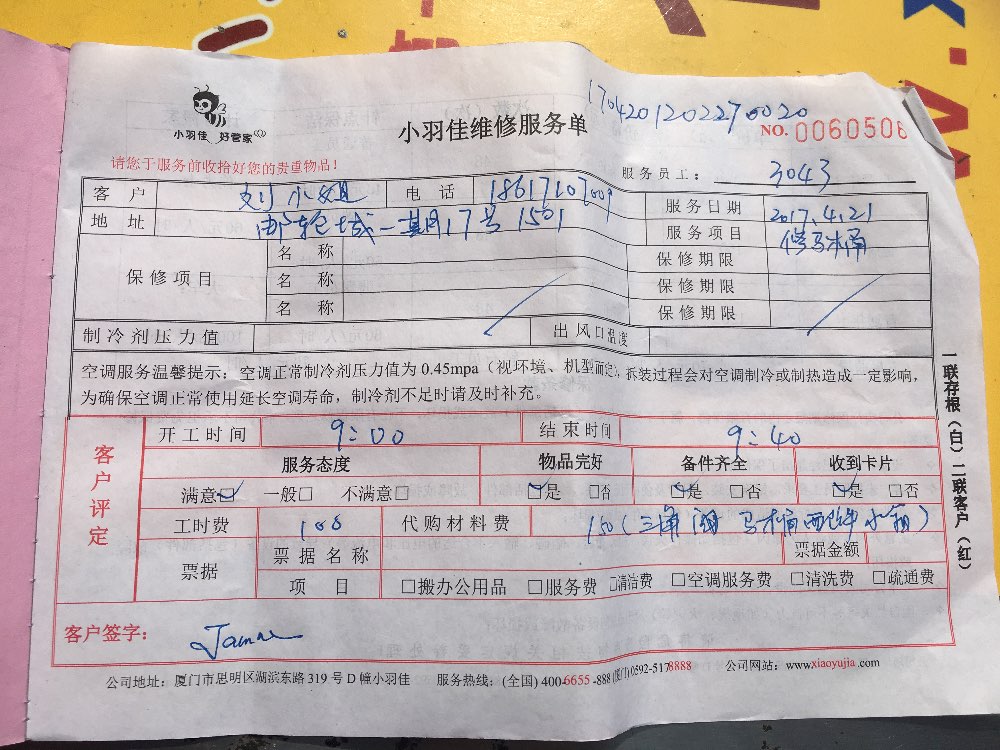 1704201202270020
小羽佳 好管家
小羽佳维修服务单
NO. 0060506
请您于服务前收拾好您的贵重物品!
服务员工: 3043
客户 刘小姐 电话 18617107009 服务日期 2017.4.21
地址 邮轮城一期17号1501 服务项目 修马木桶
保修项目 名称 保修期限
名称 保修期限
名称 保修期限
制冷剂压力值 出风口温度
空调服务温馨提示:空调正常制冷剂压力值为0.45mpa(视环境、机型而定),拆装过程会对空调制冷或制热造成一定影响,
为确保空调正常使用延长空调寿命,制冷剂不足时请及时补充。
客户评定
开工时间 9:00 结束时间 9:40
服务态度 物品完好 备件齐全 收到卡片
满意☑ 一般□ 不满意□ ☑是 □否 ☑是 □否 ☑是 □否
工时费 100 代购材料费 150(三角阀 马木桶 配件 水箱)
票据 票据名称 票据金额
项目 □搬办公用品 □服务费 □清洁费 □空调服务费 □清洗费 □疏通费
客户签字:
公司地址:厦门市思明区湖滨东路319号D幢小羽佳 服务热线:(全国)400-6655-888(厦门)0592-5178888 公司网站:www.xiaoyujia.com
一联存根(白)二联客户(红)